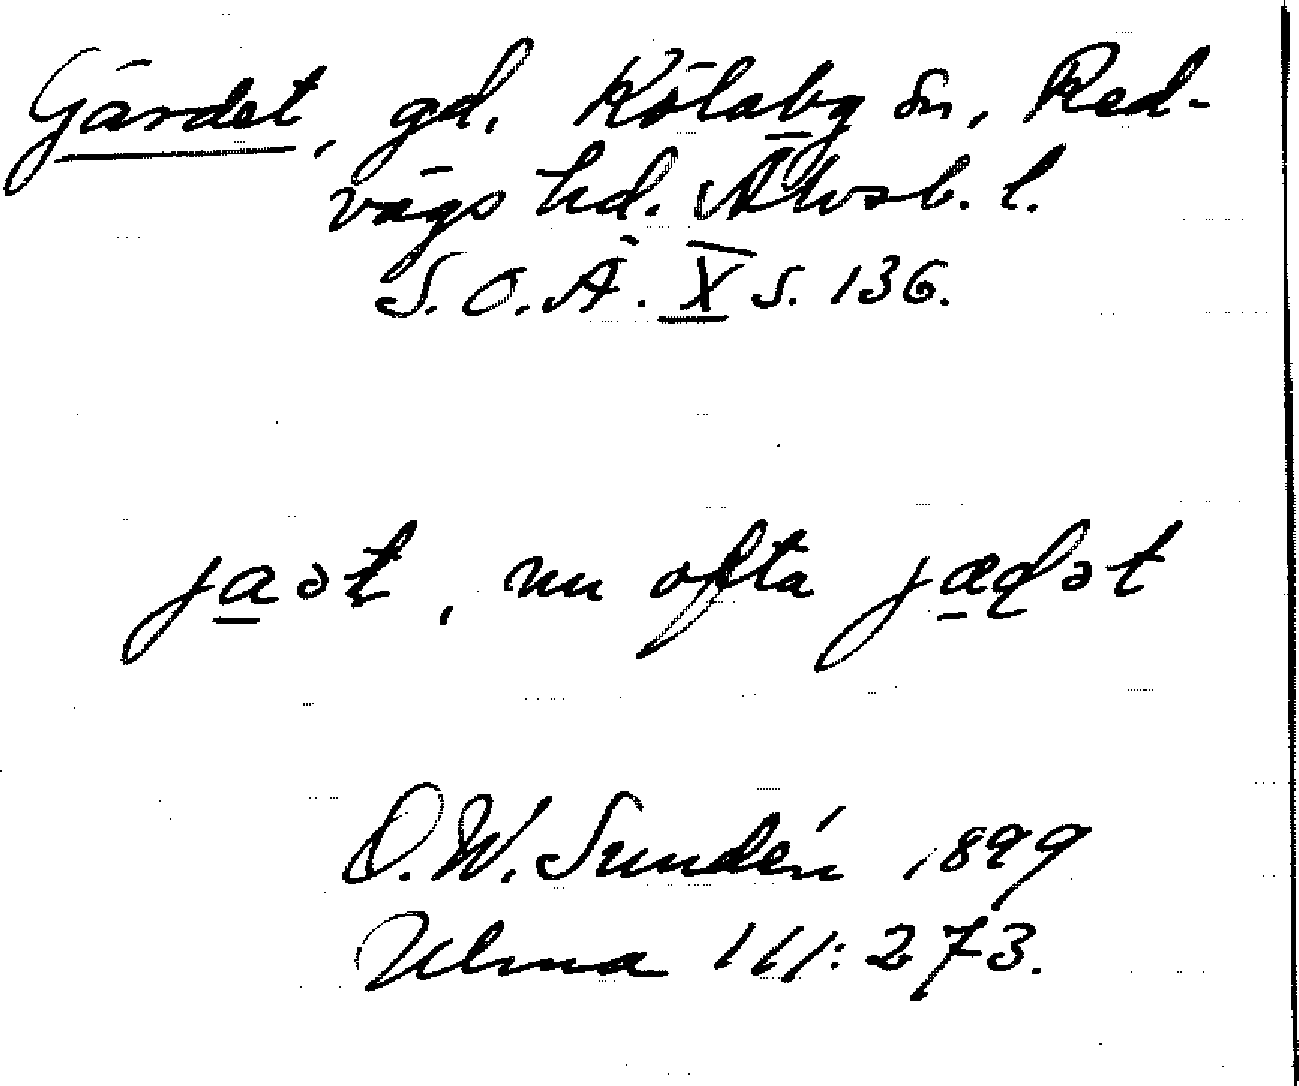 Gärdet, gd. Kölaby sn, Red-
vägs hd. Älvsb. l.
S.O.Ä. X s. 136.
jaət, nu ofta jæɖət
D.W. Sundén 1899
Ulma 111:273.